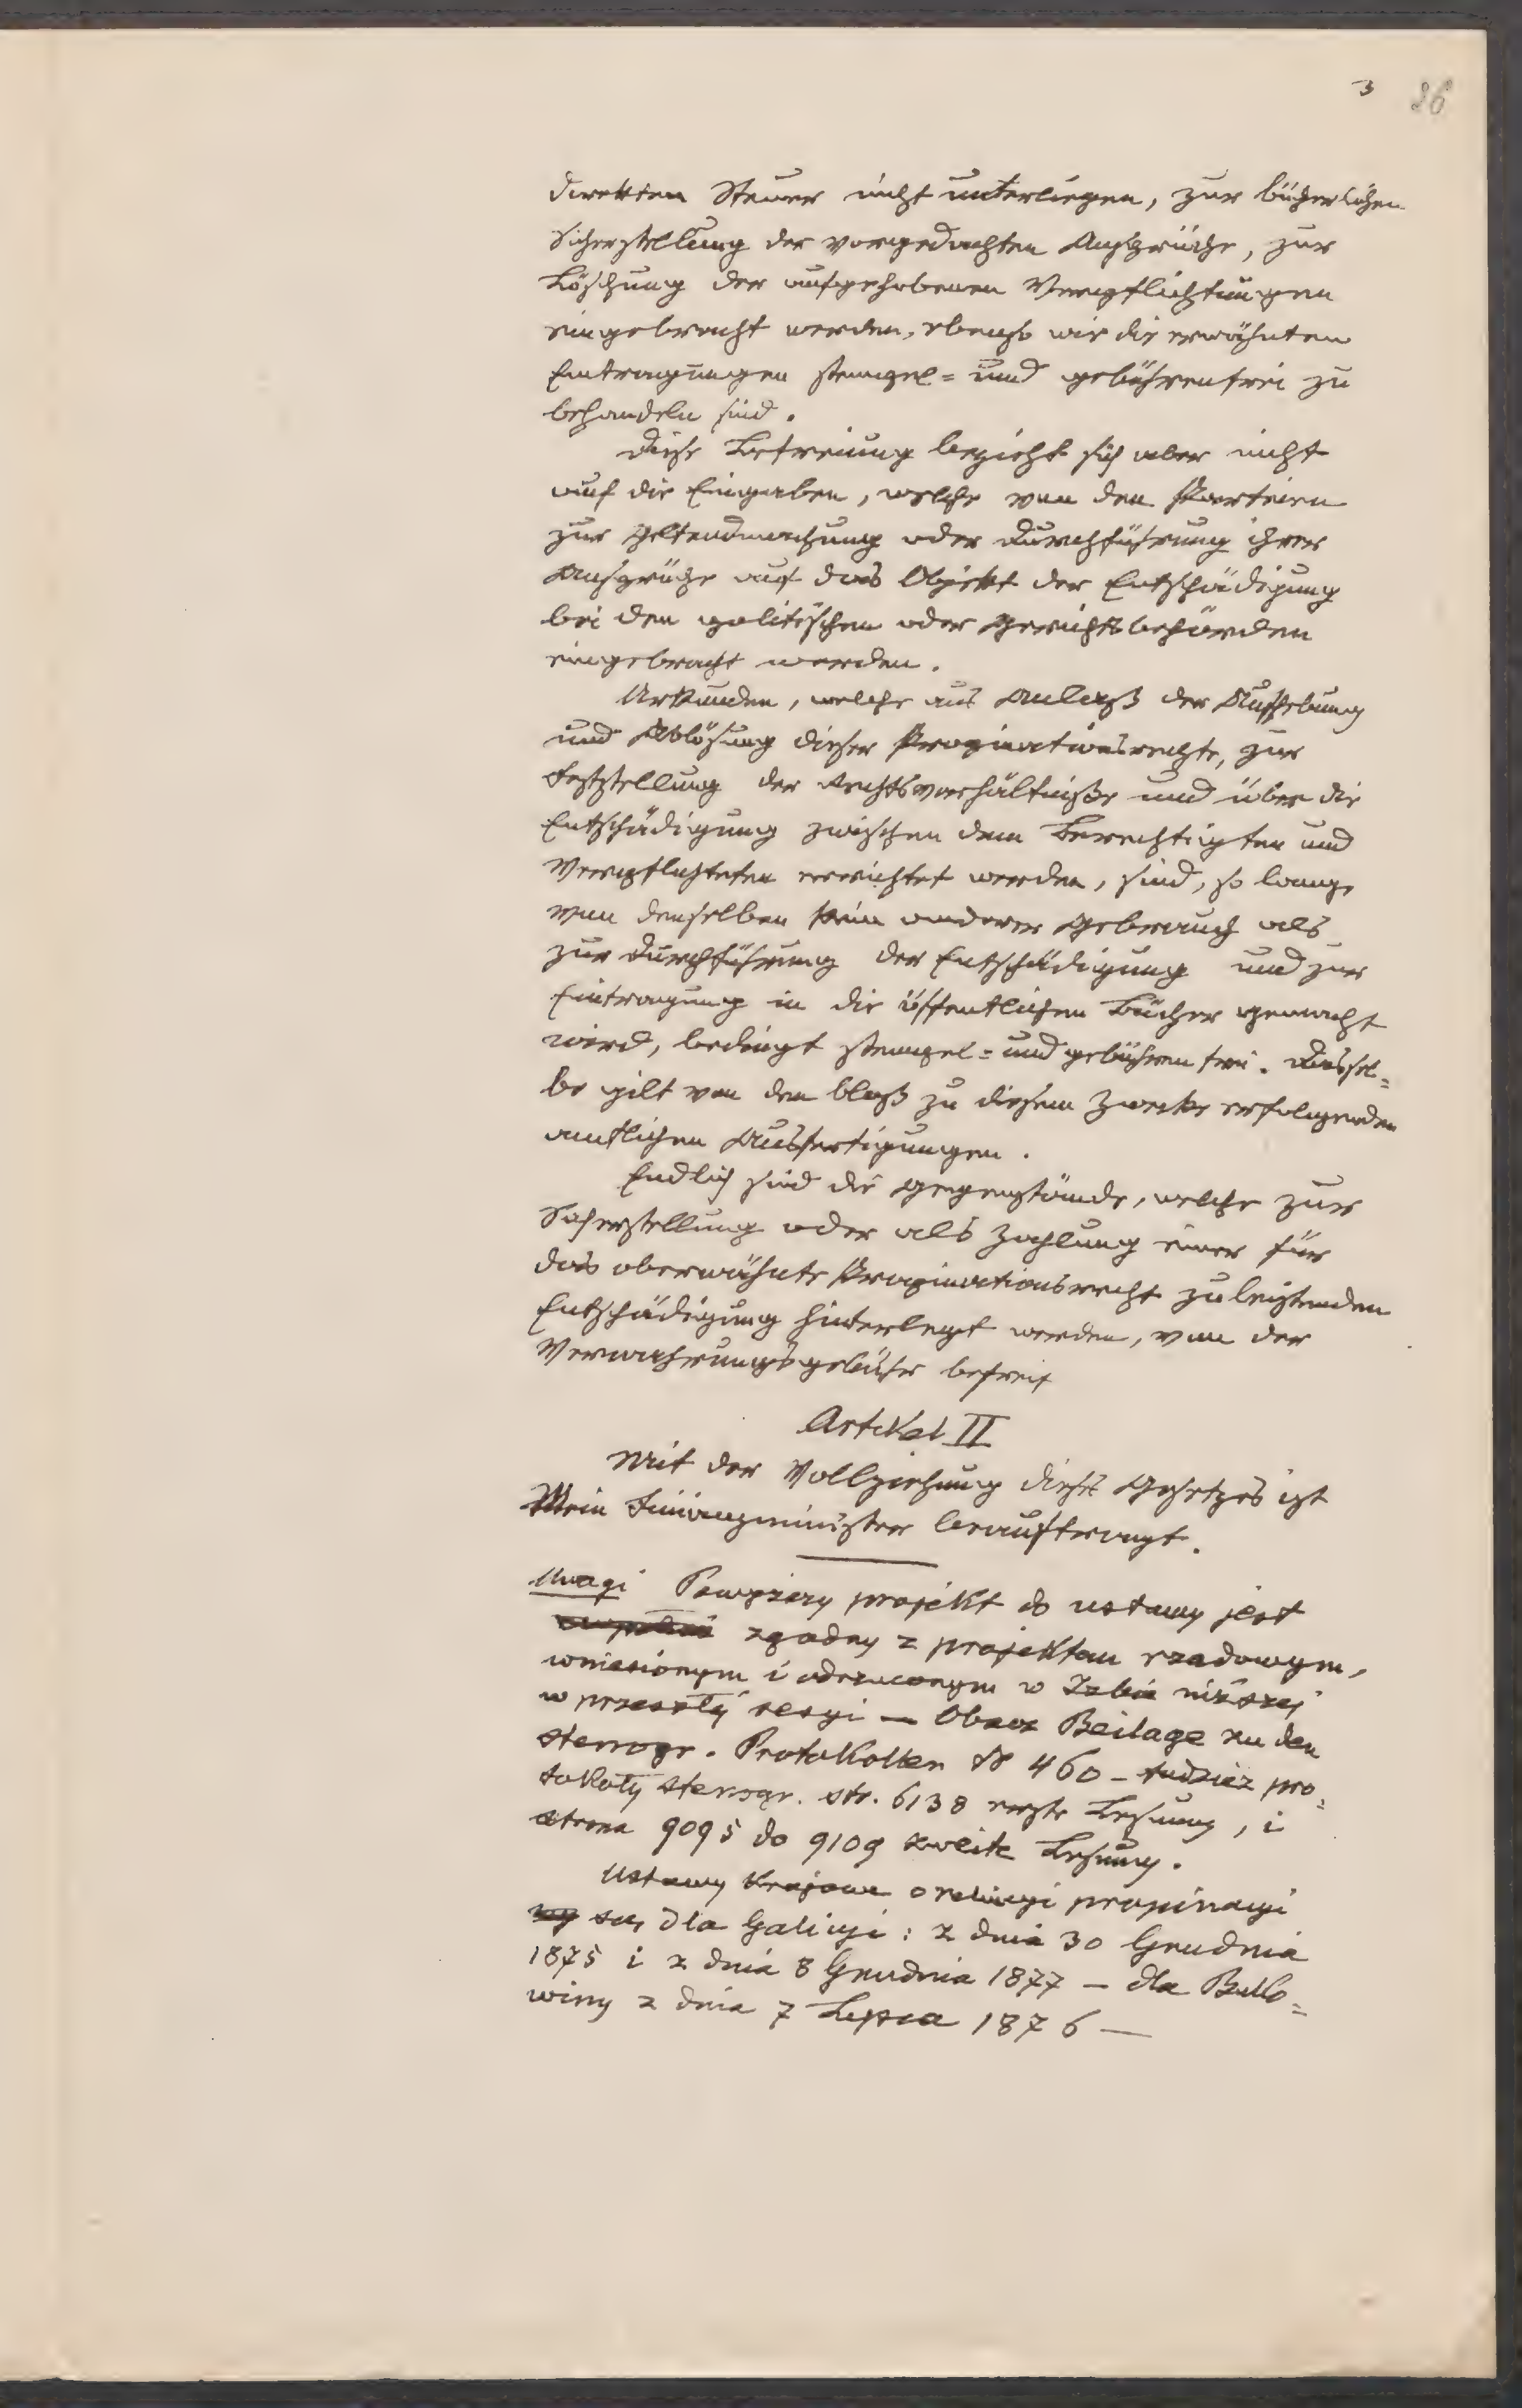 3 86
direkten Steuer nicht unterliegen, zur bücherlichen
Sicherstellung der vorgedachten Ansprüche, zur
Löschung der aufgehobenen Verpflichtungen
eingebracht werden, ebenso wie die erwähnten
Eintragungen stempel= und gebührenfrei zu
behandeln sind.
Diese Befreiung bezieht sich aber nicht
auf die Eingaben, welche von den Parteien
zur Geltendmachung oder Durchführung ihrer
Ansprüche auf das Objekt der Entschädigung
bei den politischen oder Gerichtsbehörden
eingebracht werden.
Urkunden, welche aus Anlaß der Aufhebung
und Ablösung dieser Propinationsrechte, zur
Feststellung der Rechtsverhältniße und über die
Entschädigung zwischen dem Berechtigten und
Verpflichteten errichtet werden, sind, so lange
von denselben kein anderer Gebrauch als
zur Durchführung der Entschädigung und zur
Eintragung in die öffentlichen Bücher gemacht
wird, bedingt stempel= und gebührenfrei. Dassel=
be gilt von den bloß zu diesem Zwecke erfolgenden
amtlichen Ausfertigungen.
Endlich sind die Gegenstände, welche zur
Sicherstellung oder als Zahlung einer für
das oberwähnte Propinationsrecht zu leistenden
Entschädigung hinterlegt werden, von der
Verwahrungsgebühr befreit
Artikel II
Mit der Vollziehung dieses Gesetzes ist
Mein Finanzminister beauftragt.
Uwagi Powyższy projekt do ustawy jest
zgodny z projektem rządowym,
wniesionym i odrzuconym w Izbie niższej
w przeszłej sesyi — Obacz Beilage zu den
stenogr. Protokollen № 460 — tudzież pro=
tokoły stenogr. str. 6138 erste Lesung, i
strona 9095 do 9109 zweite Lesung.
Ustawy krajowe o propinacyi
są dla Galicyi: z dnia 30 Grudnia
1875 i z dnia 8 Grudnia 1877 — dla Buko=
winy z dnia 7 Lipca 1876 —